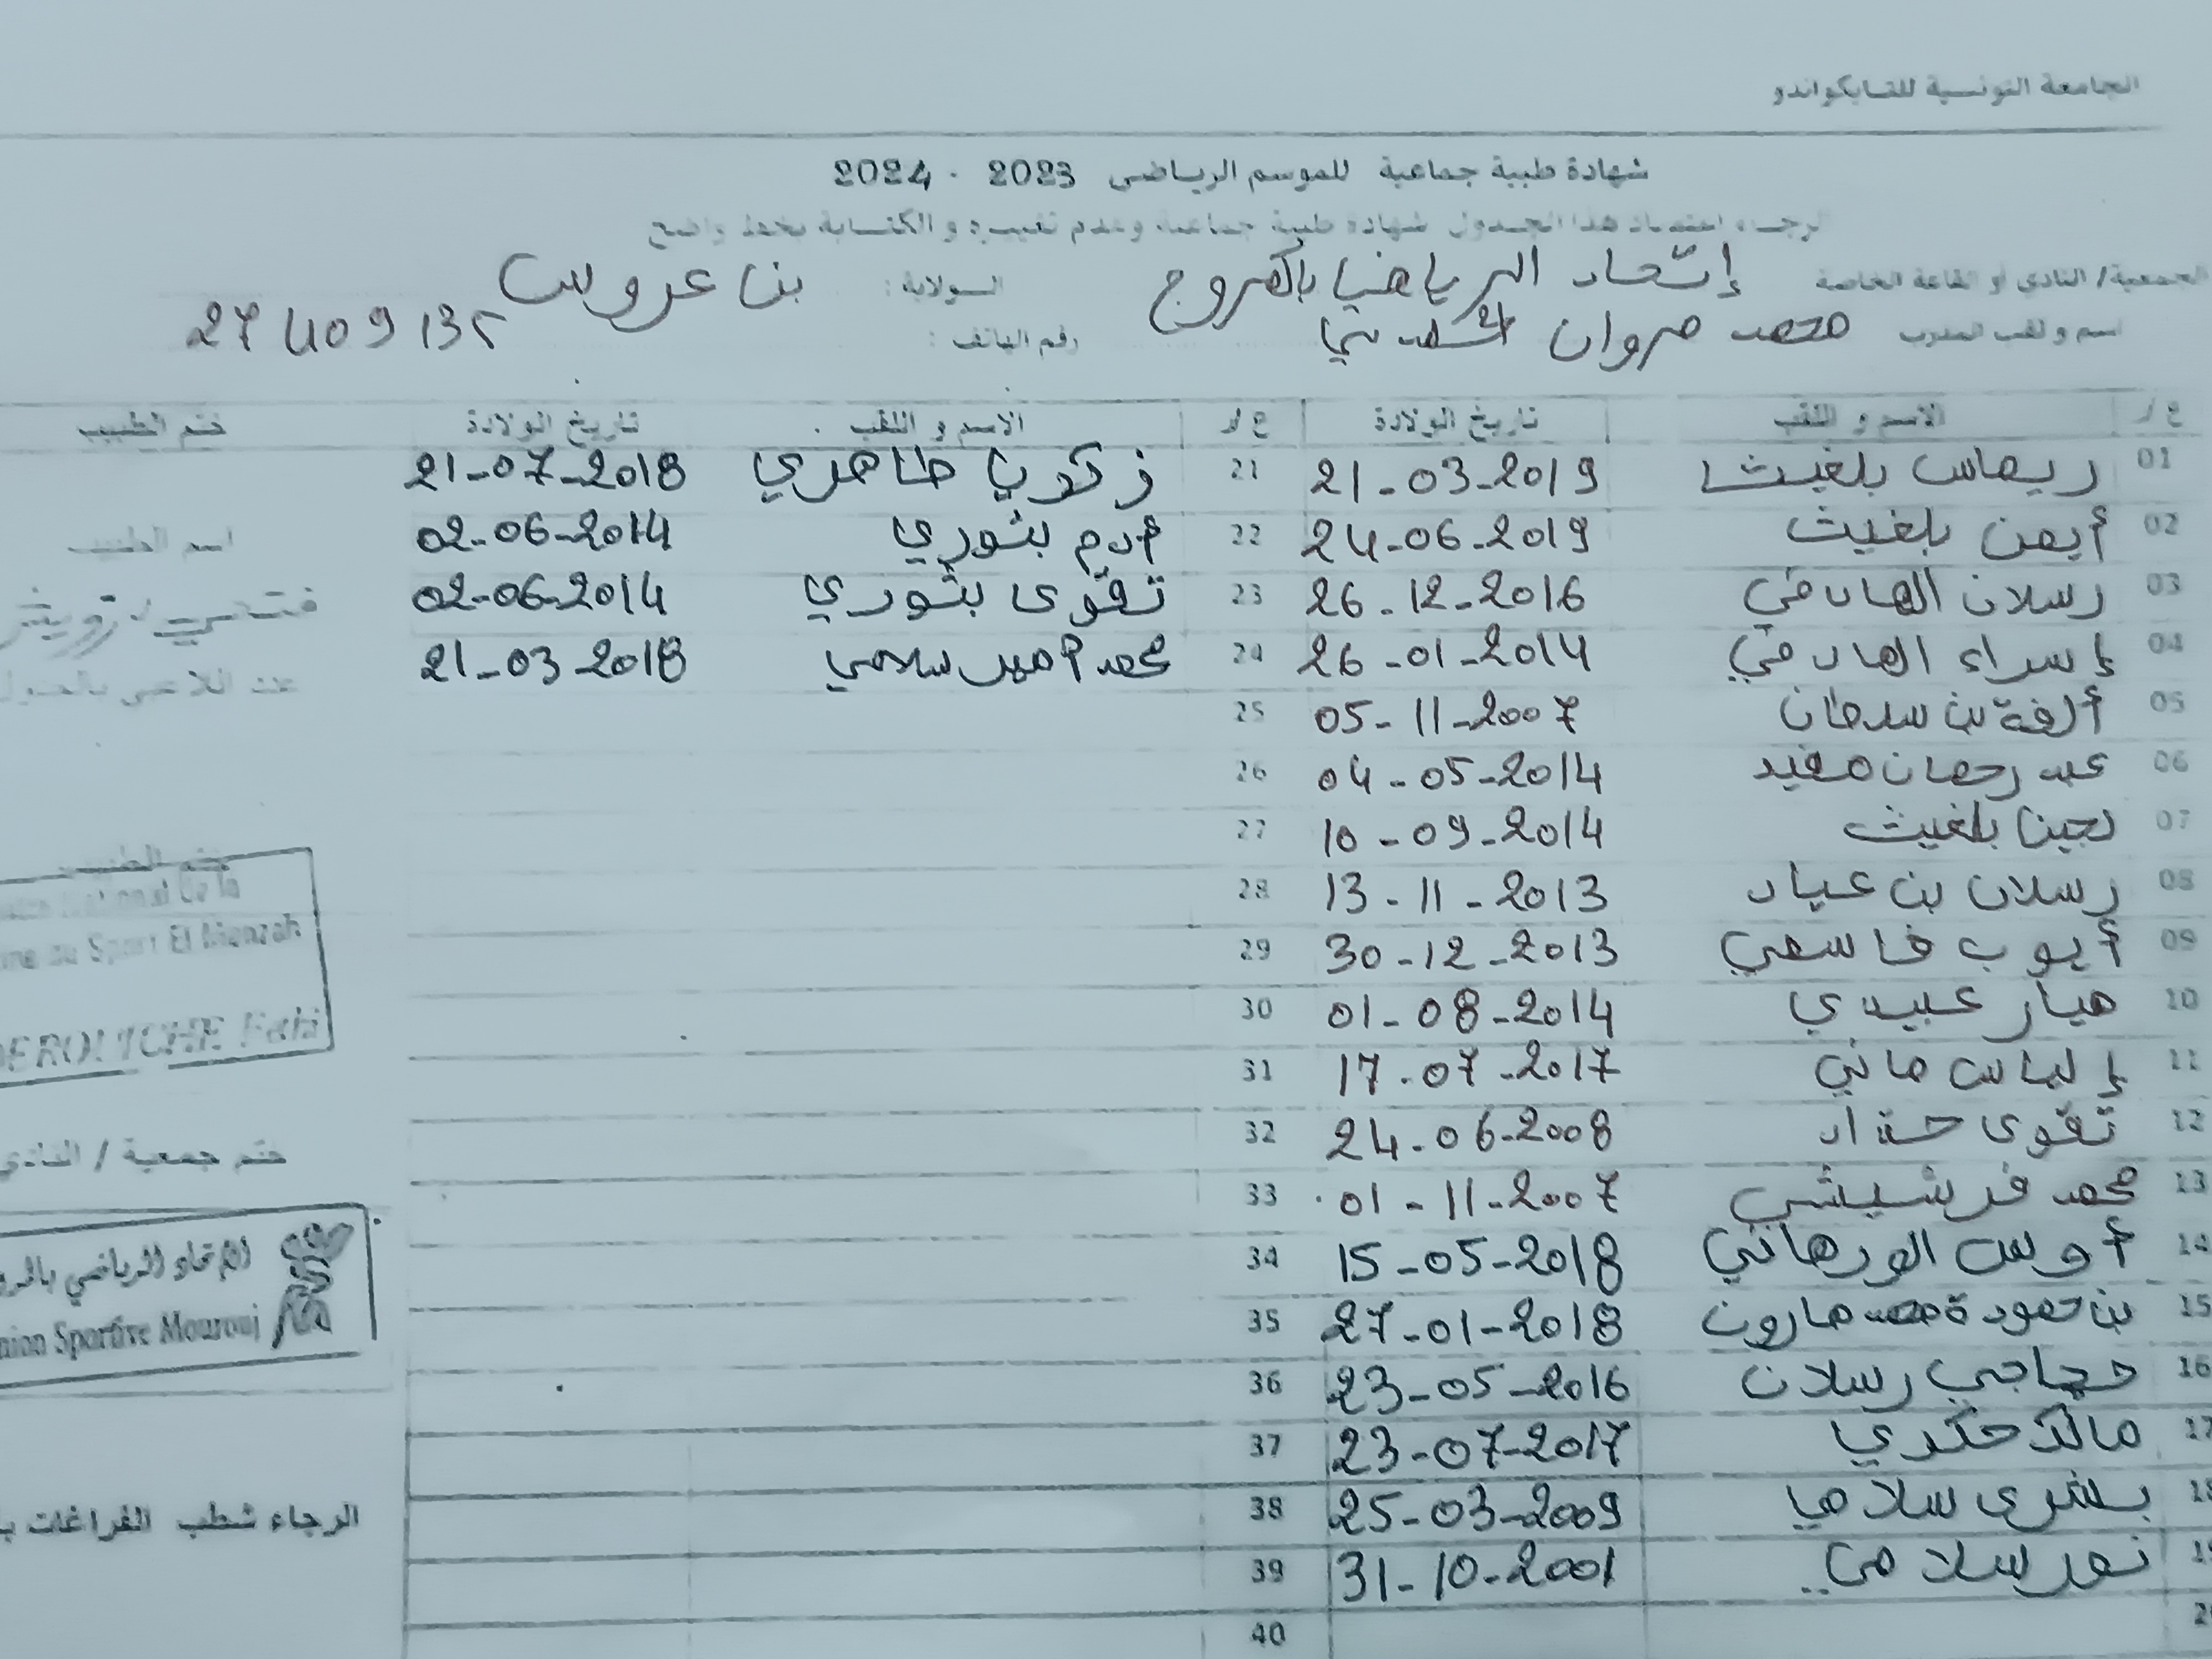 الجامعة التونسية للتايكواندو
شهادة طبية جماعية للموسم الرياضي 2023 - 2024
الرجاء اعتماد هذا الجدول شهادة طبية جماعية وعدم تغييره و الكتابة بخط واضح
الجمعية/ النادي أو القاعة الخاصة إتحاد الرياضي بالمروج الولاية: بن عروس
اسم ولقب المدرب محمد مروان رقم الهاتف: 27 409 135
ع/ر الاسم و اللقب تاريخ الولادة ع/ر الاسم و اللقب تاريخ الولادة ختم الطبيب
01 ريماس بلغيث 21-03-2019 21 زكريا طاهري 21-07-2018
02 أيمن بلغيث 24-06-2019 22 أدم بثوري 02-06-2014 اسم الطبيب
03 رسلان الهادفي 26-12-2016 23 تقوى بثوري 02-06-2014 فتحي درويش
04 إسراء الهادفي 26-01-2014 24 محمد أمين سلامي 21-03-2018
عدد اللاعبين بالجدول
05 ألفة بن سرحان 05-11-2007 25
06 عبد رحمان مفيد 04-05-2014 26
07 لجين بلغيث 10-09-2014 27
ختم الطبيب
08 رسلان بن عياد 13-11-2013 28 National de la
09 أيوب قاسمي 30-12-2013 29 au Sport El Menzah
10 هيار عبيدي 01-08-2014 30 DEROUICHE Fethi
11 إلياس ماني 17-07-2017 31
12 تقوى حداد 24-06-2008 32 ختم جمعية / النادي
13 محمد فرشيشي 01-11-2007 33
14 أوس الورهاني 15-05-2018 34 الإتحاد الرياضي
15 بن حمودة محمد هارون 27-01-2018 35 Union Sportive Mourouj
16 حجاجي رسلان 23-05-2016 36
17 مالك حكري 23-07-2017 37
18 بشرى سلامي 25-03-2009 38 الرجاء شطب الفراغات
19 نور سلامي 31-10-2001 39
40